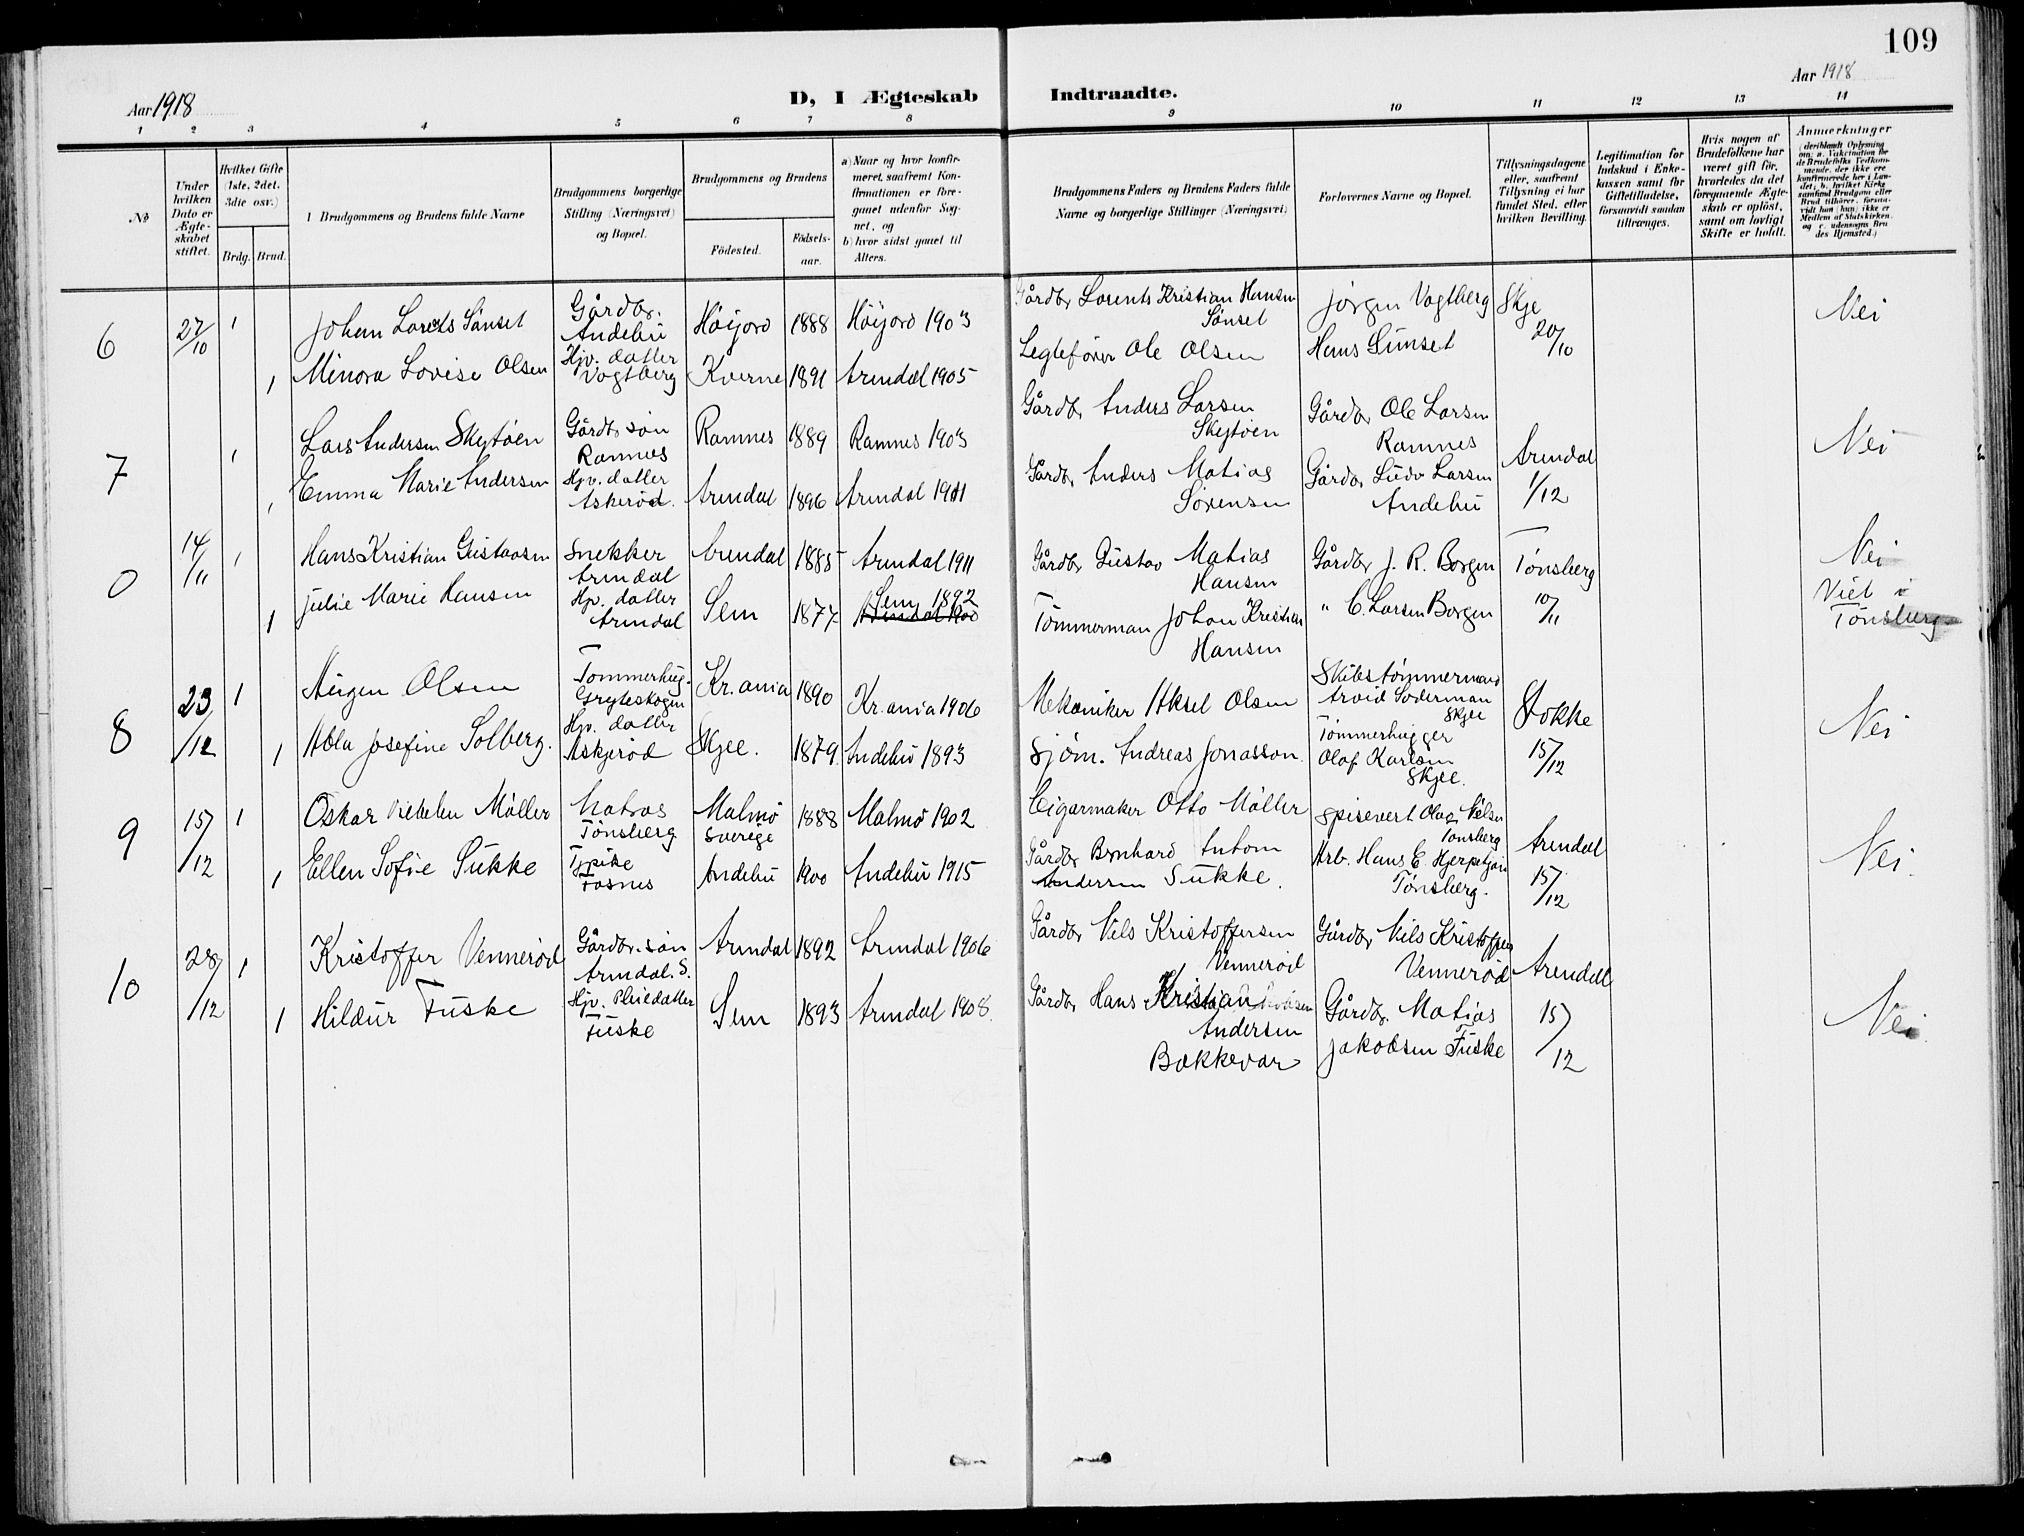 109
Aar 1918
D, I Ægteskab Indtraadte.
Aar 1918
1 2 3 4 5 6 7 8 9 10 11 12 13 14
No
Under hvilken Dato er Ægteskabet stiftet.
Hvilket Gifte (1ste, 2det, 3die osv.)
Brdg. Brud.
Brudgommens og Brudens fulde Navne
Brudgommens borgerlige Stilling (Næringsvei) og Bopæl.
Brudgommens og Brudens
Födested. Födsels-aar.
a) Naar og hvor konfirmeret, saafremt Konfirmationen er foregaaet udenfor Sognet, og
b) hvor sidst gaaet til Alters.
Brudgommens Faders og Brudens Faders fulde Navne og borgerlige Stillinger (Næringsvei)
Forlovernes Navne og Bopæl.
Tillysningsdagene eller, saafremt Tillysning ei har fundet Sted, efter hvilken Bevilling.
Legitimation for Indskud i Enkekassen samt for Giftetilladelse, forsaavidt saadan tiltrænges.
Hvis nogen af Brudefolkene har været gift før, hvorledes da det foregaaende Ægteskab er oplöst, samt om lovligt Skifte er holdt.
Anmerkninger
6 27/10 1 Johan Lorents Sønset Gårdbr. Andebu Høijord 1888 Høijord 1903 Gårdbr Lorents Kristian Hansen Sønset Jørgen Vagtberg Skje 20/10 Nei
1 Minora Lovise Olsen Hjv. datter Vogtberg Kverne 1891 Arendal 1905 Legtefører Ole Olsen Hans Sunset
7 1 Lars Andersen Skytøen Gårdbr søn Ramnes Ramnes 1889 Ramnes 1903 Gårdbr Anders Larsen Skytøen Gårdbr Ole Larsen Ramnes Arendal 1/12 Nei
1 Emma Marie Andersen Hjv. datter Askerød. Arendal 1896 Arendal 1911 Gårdbr Anders Matias Sørensen Gårdbr Ludv Larsen Andebu
0 14/11 1 Hans Kristian Gustavsen Snekker Arendal Arendal 1885 Arendal 1911 Gårdbr Gustav Matias Hansen Gårdbr J. R. Borgen Tønsberg 10/11 Nei
1 Julie Marie Hansen Hjv. datter Arendal Sem 1877 Sem 1892 Tømmerman Johan Kristian Hansen " C. Larsen Borgen Viet i Tønsberg
8 23/12 1 Olsen Tømmerhug. Gryteskogen Kr.ania 1890 Kr.ania 1906 Mekaniker Aksel Olsen Skibstømmermand Arvid Søderman Skjee Stokke 15/12 Nei
1 Abla Josefine Solberg. Hjv. datter Askjerød Skjee. 1879 Andebu 1893 Sjøm. Andreas Jonasson. Tømmerhugger Olaf Karlsen Skjee.
9 15/12 1 Oskar Møller Matros Tønsberg Malmø Sverige 1888 Malmø 1902 Cigarmaker Otto Møller Spisevert Olaf Nilsen Tønsberg Arendal 15/12 Nei.
1 Ellen Sofie Sukke Andebu 1900 Andebu 1915 Gårdbr Bernhard Antom Andersen Sukke. Arb. Hans E. Tønsberg.
10 28/12 1 Kristoffer Vennerød Gårdbr. søn Arendal. S. Arendal 1892 Arendal 1906 Gårdbr Nils Kristoffersen Vennerød Gårdbr Nils Kristoffersen Vennerød Arendal 15/12 Nei
1 Hildur Fuske Hjv. Pleiedatter Fuske Sem 1893 Arendal 1908. Gårdbr Hans Kristian Andersen Bakkevar Gårdbr. Matias Jakobsen Fuske